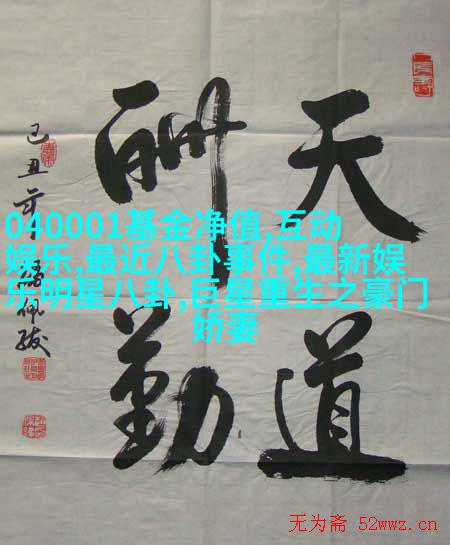 天道
酬勤
己丑年
040001基金净值,互动
娱乐,最近八卦事件,最新娱
乐明星八卦,巨星重生之豪门
娇妻
无为斋 52wwz.cn